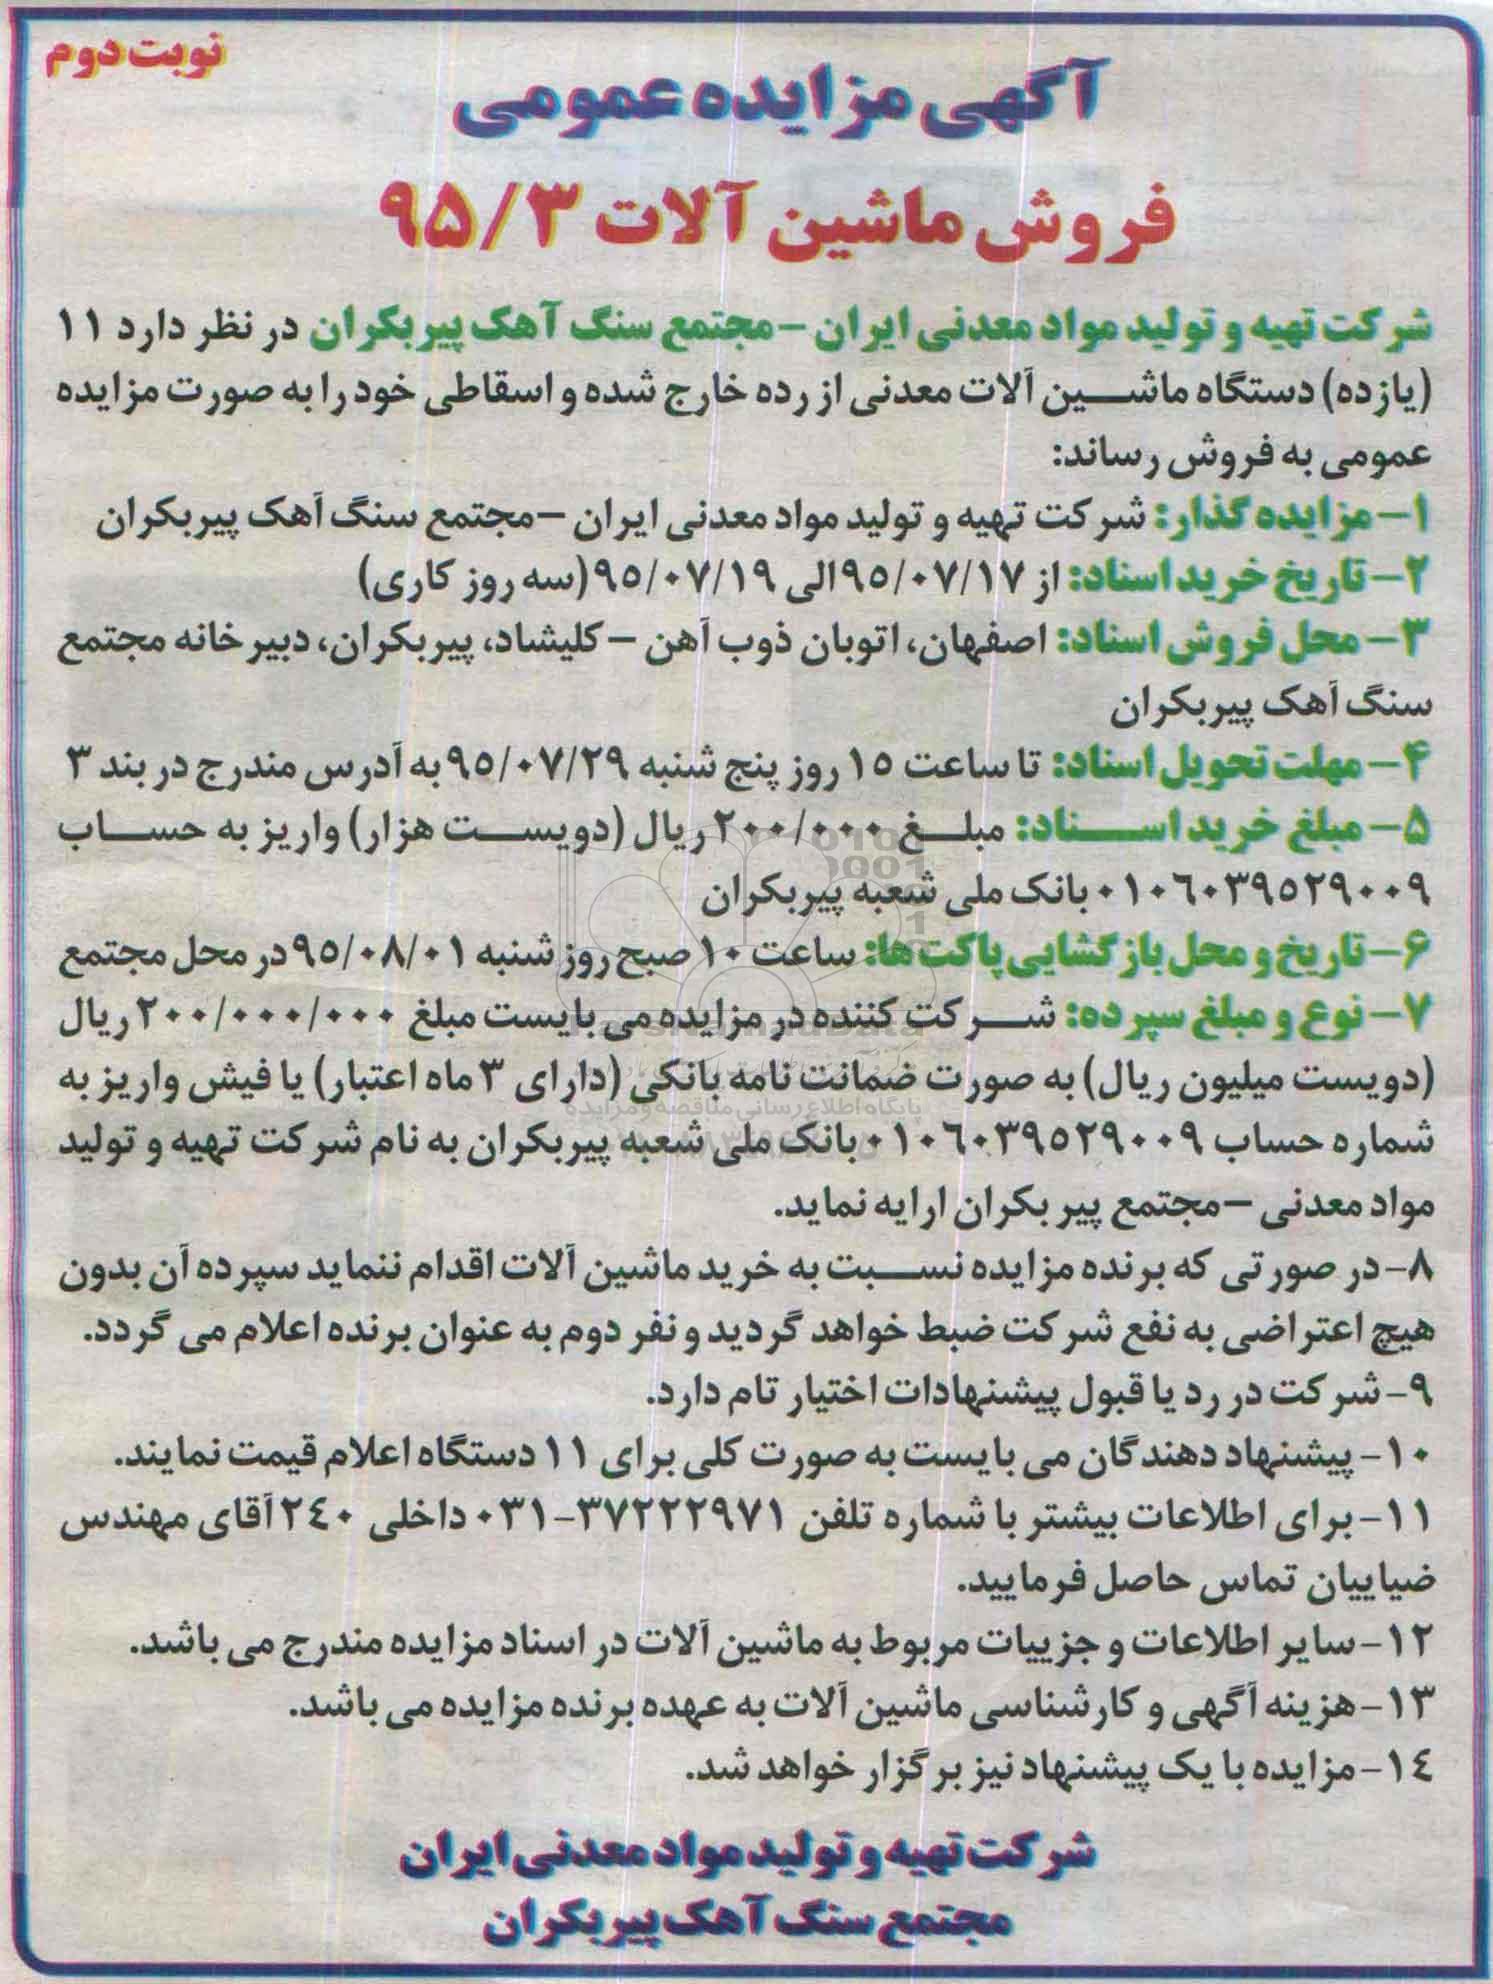 نوبت دوم
آگهی مزایده عمومی
فروش ماشین آلات ۹۵/۳
شرکت تهیه و تولید مواد معدنی ایران - مجتمع سنگ آهک پیربکران در نظر دارد ۱۱
(یازده) دستگاه ماشین آلات معدنی از رده خارج شده و اسقاطی خود را به صورت مزایده
عمومی به فروش رساند:
۱- مزایده گذار: شرکت تهیه و تولید مواد معدنی ایران - مجتمع سنگ آهک پیربکران
۲- تاریخ خرید اسناد: از ۹۵/۰۷/۱۷ الی ۹۵/۰۷/۱۹ (سه روز کاری)
۳- محل فروش اسناد: اصفهان، اتوبان ذوب آهن - کلیشاد، پیربکران، دبیرخانه مجتمع
سنگ آهک پیربکران
۴- مهلت تحویل اسناد: تا ساعت ۱۵ روز پنج شنبه ۹۵/۰۷/۲۹ به آدرس مندرج در بند ۳
۵- مبلغ خرید اسناد: مبلغ ۲۰۰/۰۰۰ ریال (دویست هزار) واریز به حساب
۰۱۰۶۰۳۹۵۲۹۰۰۹ بانک ملی شعبه پیربکران
۶- تاریخ و محل بازگشایی پاکت ها: ساعت ۱۰ صبح روز شنبه ۹۵/۰۸/۰۱ در محل مجتمع
۷- نوع و مبلغ سپرده: شرکت کننده در مزایده می بایست مبلغ ۲۰۰/۰۰۰/۰۰۰ ریال
(دویست میلیون ریال) به صورت ضمانت نامه بانکی (دارای ۳ ماه اعتبار) یا فیش واریز به
شماره حساب ۰۱۰۶۰۳۹۵۲۹۰۰۹ بانک ملی شعبه پیربکران به نام شرکت تهیه و تولید
مواد معدنی - مجتمع پیر بکران ارایه نماید.
پایگاه اطلاع رسانی مناقصه و مزایده
۸- در صورتی که برنده مزایده نسبت به خرید ماشین آلات اقدام ننماید سپرده آن بدون
هیچ اعتراضی به نفع شرکت ضبط خواهد گردید و نفر دوم به عنوان برنده اعلام می گردد.
۹- شرکت در رد یا قبول پیشنهادات اختیار تام دارد.
۱۰- پیشنهاد دهندگان می بایست به صورت کلی برای ۱۱ دستگاه اعلام قیمت نمایند.
۱۱- برای اطلاعات بیشتر با شماره تلفن ۰۳۱-۳۷۲۲۲۹۷۱ داخلی ۲۴۰ آقای مهندس
ضیاییان تماس حاصل فرمایید.
۱۲- سایر اطلاعات و جزییات مربوط به ماشین آلات در اسناد مزایده مندرج می باشد.
۱۳- هزینه آگهی و کارشناسی ماشین آلات به عهده برنده مزایده می باشد.
۱۴- مزایده با یک پیشنهاد نیز برگزار خواهد شد.
شرکت تهیه و تولید مواد معدنی ایران
مجتمع سنگ آهک پیربکران